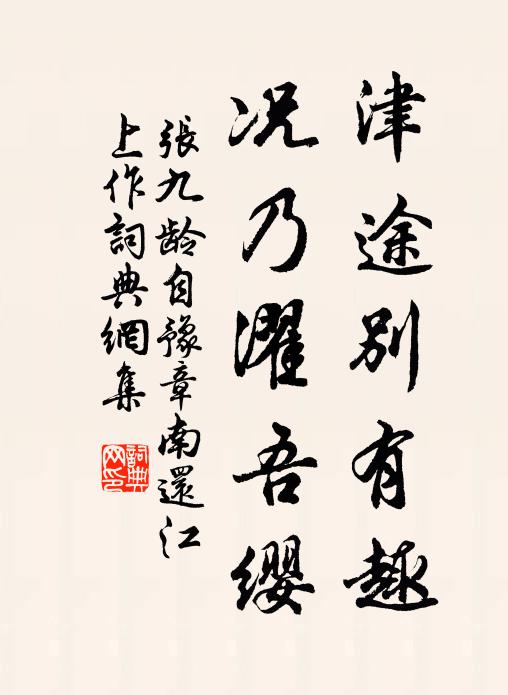 津途别有趣
况乃濯吾缨
張九龄自豫章南還江
上作詞典網集
詞典
网印